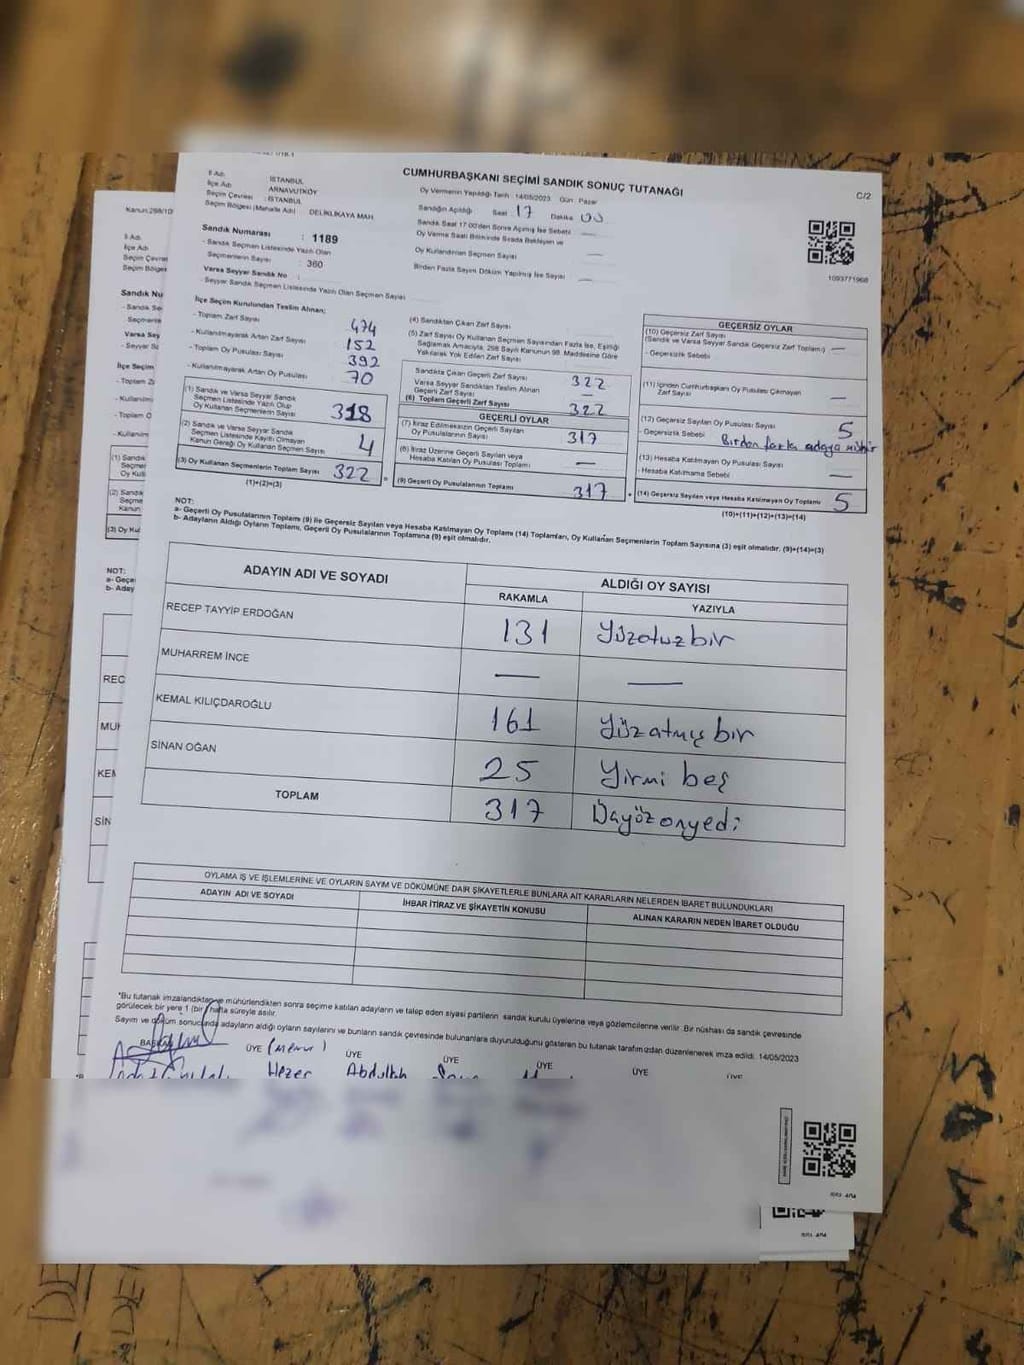 CUMHURBAŞKANI SEÇİMİ SANDIK SONUÇ TUTANAĞI
C/2
İl Adı : İSTANBUL
İlçe Adı : ARNAVUTKÖY
Seçim Çevresi : İSTANBUL
Seçim Bölgesi (Mahalle Adı) DELİKLİKAYA MAH.
Oy Vermenin Yapıldığı Tarih : 14/05/2023 Gün : Pazar
Sandığın Açıldığı Saat : 17 Dakika 00
Sandık Saat 17.00'den Sonra Açılmış İse Sebebi —
Oy Verme Saati Bitiminde Sırada Bekleyen ve
Oy Kullandırılan Seçmen Sayısı —
Birden Fazla Sayım Döküm Yapılmış İse Sayısı —
1093771968
Sandık Numarası : 1189
- Sandık Seçmen Listesinde Yazılı Olan
Seçmenlerin Sayısı : 360
Varsa Seyyar Sandık No :
- Seyyar Sandık Seçmen Listesinde Yazılı Olan Seçmen Sayısı
İlçe Seçim Kurulundan Teslim Alınan;
- Toplam Zarf Sayısı 474
- Kullanılmayarak Artan Zarf Sayısı 152
- Toplam Oy Pusulası Sayısı 392
- Kullanılmayarak Artan Oy Pusulası 70
(1) Sandık ve Varsa Seyyar Sandık
Seçmen Listesinde Yazılı Olup
Oy Kullanan Seçmenlerin Sayısı 318
(2) Sandık ve Varsa Seyyar Sandık
Seçmen Listesinde Kayıtlı Olmayan
Kanun Gereği Oy Kullanan Seçmen Sayısı 4
(3) Oy Kullanan Seçmenlerin Toplam Sayısı 322
(1)+(2)=(3)
(4) Sandıktan Çıkan Zarf Sayısı
(5) Zarf Sayısı Oy Kullanan Seçmen Sayısından Fazla İse, Eşitliği
Sağlamak Amacıyla, 298 Sayılı Kanunun 98. Maddesine Göre
Yakılarak Yok Edilen Zarf Sayısı
Sandıkta Çıkan Geçerli Zarf Sayısı 322
Varsa Seyyar Sandıktan Teslim Alınan
Geçerli Zarf Sayısı —
(6) Toplam Geçerli Zarf Sayısı 322
GEÇERLİ OYLAR
(7) İtiraz Edilmeksizin Geçerli Sayılan
Oy Pusulalarının Sayısı 317
(8) İtiraz Üzerine Geçerli Sayılan veya
Hesaba Katılan Oy Pusulası Toplamı —
(9) Geçerli Oy Pusulalarının Toplamı 317
GEÇERSİZ OYLAR
(10) Geçersiz Zarf Sayısı
(Sandık ve Varsa Seyyar Sandık Geçersiz Zarf Toplamı) —
- Geçersizlik Sebebi
(11) İçinden Cumhurbaşkanı Oy Pusulası Çıkmayan
Zarf Sayısı —
(12) Geçersiz Sayılan Oy Pusulası Sayısı 5
- Geçersizlik Sebebi Birden fazla adaya mühür
(13) Hesaba Katılmayan Oy Pusulası Sayısı —
- Hesaba Katılmama Sebebi
(14) Geçersiz Sayılan veya Hesaba Katılmayan Oy Toplamı 5
(10)+(11)+(12)+(13)=(14)
NOT:
a- Geçerli Oy Pusulalarının Toplamı (9) ile Geçersiz Sayılan veya Hesaba Katılmayan Oy Toplamı (14) Toplamları, Oy Kullanan Seçmenlerin Toplam Sayısına (3) eşit olmalıdır. (9)+(14)=(3)
b- Adayların Aldığı Oyların Toplamı, Geçerli Oy Pusulalarının Toplamına (9) eşit olmalıdır.
ADAYIN ADI VE SOYADI
ALDIĞI OY SAYISI
RAKAMLA YAZIYLA
RECEP TAYYİP ERDOĞAN 131 Yüzotuzbir
MUHARREM İNCE — —
KEMAL KILIÇDAROĞLU 161 Yüzatmış bir
SİNAN OĞAN 25 Yirmi beş
TOPLAM 317 Üçyüzonyedi
OYLAMA İŞ VE İŞLEMLERİNE VE OYLARIN SAYIM VE DÖKÜMÜNE DAİR ŞİKAYETLERLE BUNLARA AİT KARARLARIN NELERDEN İBARET BULUNDUKLARI
ADAYIN ADI VE SOYADI
İHBAR İTİRAZ VE ŞİKAYETİN KONUSU
ALINAN KARARIN NEDEN İBARET OLDUĞU
*Bu tutanak imzalandıktan ve mühürlendikten sonra seçime katılan adayların ve talep eden siyasi partilerin sandık kurulu üyelerine veya gözlemcilerine verilir. Bir nüshası da sandık çevresinde
görülecek bir yere 1 (bir) hafta süreyle asılır.
Sayım ve döküm sonucunda adayların aldığı oyların sayılarını ve bunların sandık çevresinde bulunanlara duyurulduğunu gösteren bu tutanak tarafımızdan düzenlenerek imza edildi. 14/05/2023
BAŞKAN ÜYE (memur) ÜYE ÜYE ÜYE ÜYE ÜYE
Hezer Abdullah